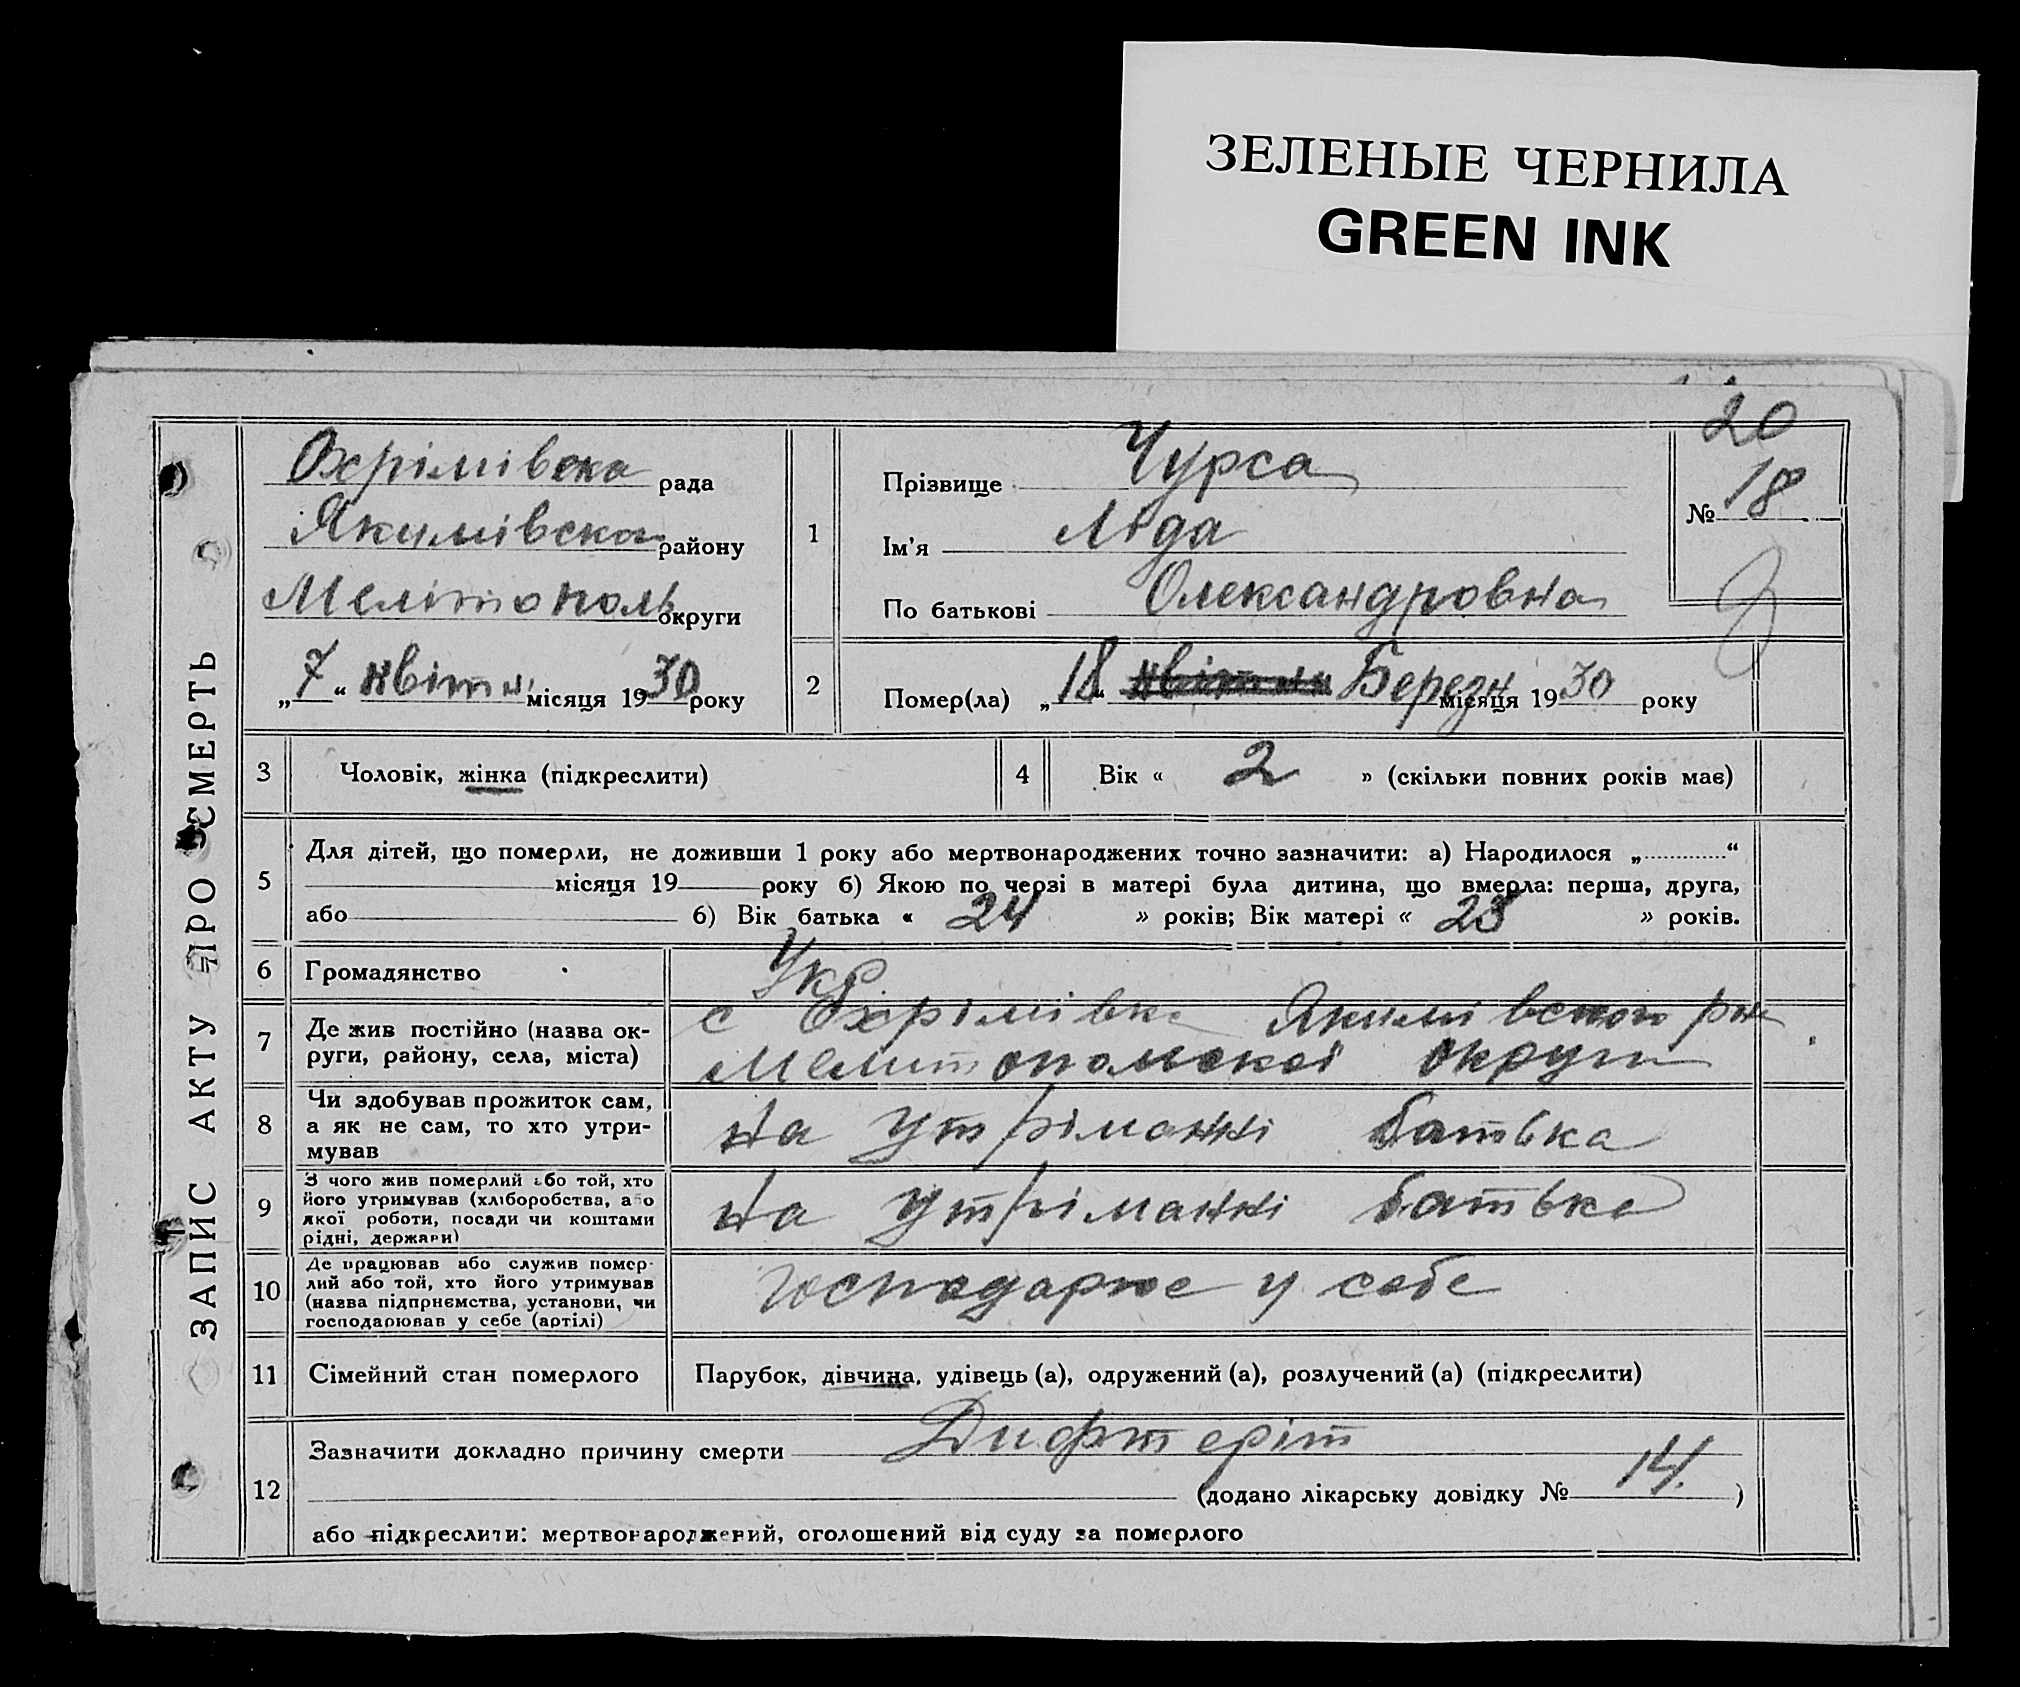 ЗЕЛЕНЫЕ ЧЕРНИЛА
GREEN INK
20
ЗАПИС АКТУ ПРО СМЕРТЬ
Охрімівска рада
Якимівска району
Мелітополь округи
„7“ квітн місяця 1930 року
1
Прізвище Чурса
Ім'я Ліда
По батькові Олександровна
№ 18
2
Помер(ла) „18“ квітня Березн місяця 1930 року
3 Чоловік, жінка (підкреслити)
4 Вік « 2 » (скільки повних років має)
5
Для дітей, що померли, не доживши 1 року або мертвонароджених точно зазначити: а) Народилося „ “
місяця 19 року б) Якою по черзі в матері була дитина, що вмерла: перша, друга,
або б) Вік батька « 24 » років; Вік матері « 23 » років.
6 Громадянство Укр
7 Де жив постійно (назва ок-
руги, району, села, міста)
с Охрімівка Якимівского рна
Мелитопольскої округи
8 Чи здобував прожиток сам,
а як не сам, то хто утри-
мував
На утріманні батька
9 З чого жив померлий або той, хто
його утримував (хліборобства, або
якої роботи, посади чи коштами
рідні, держави)
На утріманні батька
10 Де працював або служив помер-
лий або той, хто його утримував
(назва підпрнємства, установи, чи
господарював у себе (артілі)
господарює у себе
11 Сімейний стан померлого Парубок, дівчина, удівець (а), одружений (а), розлучений (а) (підкреслити)
12 Зазначити докладно причину смерти Дифтеріт
(додано лікарську довідку № 14. )
або підкреслити: мертвонароджений, оголошений від суду за померлого